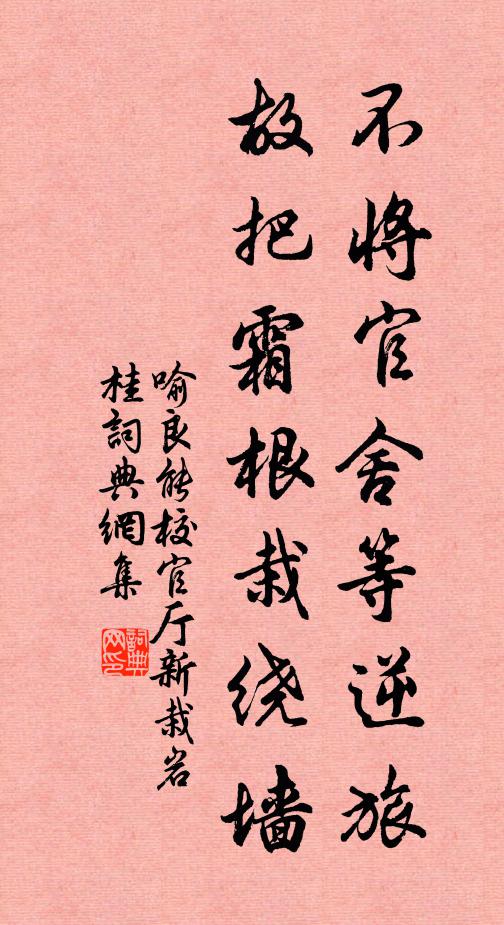 不将官舍等逆旅
故把霜根栽绕墙
喻良能校官厅新栽岩
桂詞典網集
詞典
网印